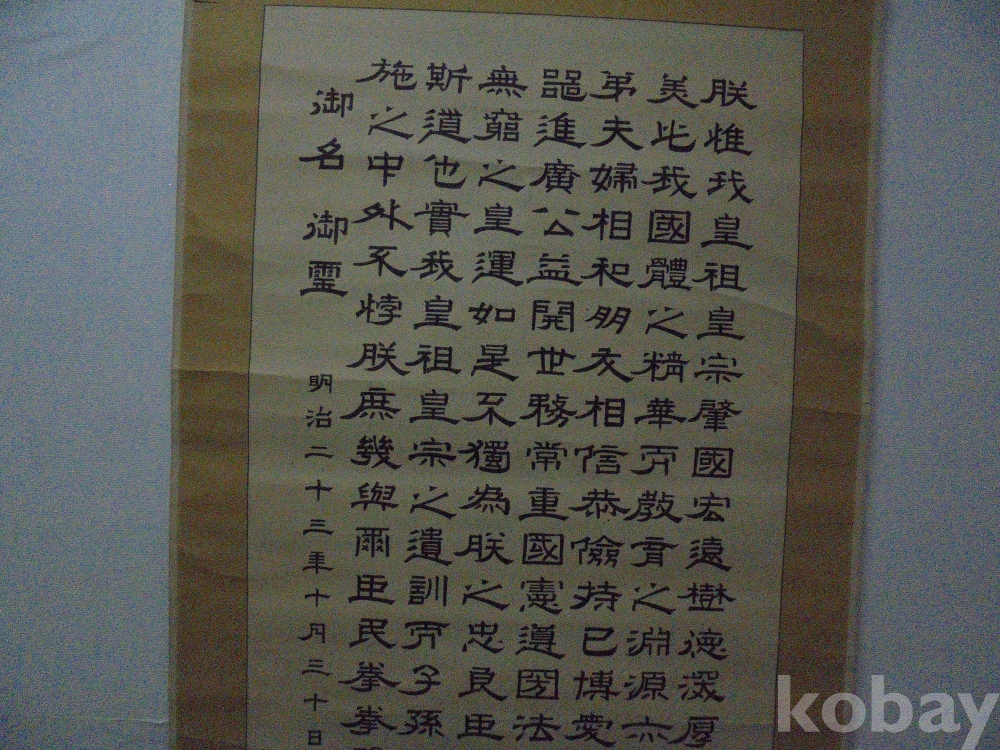 朕惟我皇祖皇宗肇國宏遠樹德深厚
美此我國體之精華而教育之淵源亦
弟夫婦相和朋友相信恭儉持己博愛
器進廣公益開世務常重國憲遵圀法
無窮之皇運如是不獨為朕之忠良臣
斯道也實我皇祖皇宗之遺訓而子孫
施之中外不悖朕庶幾與爾臣民拳拳
御名 御璽 明治二十三年十月三十日
kobay